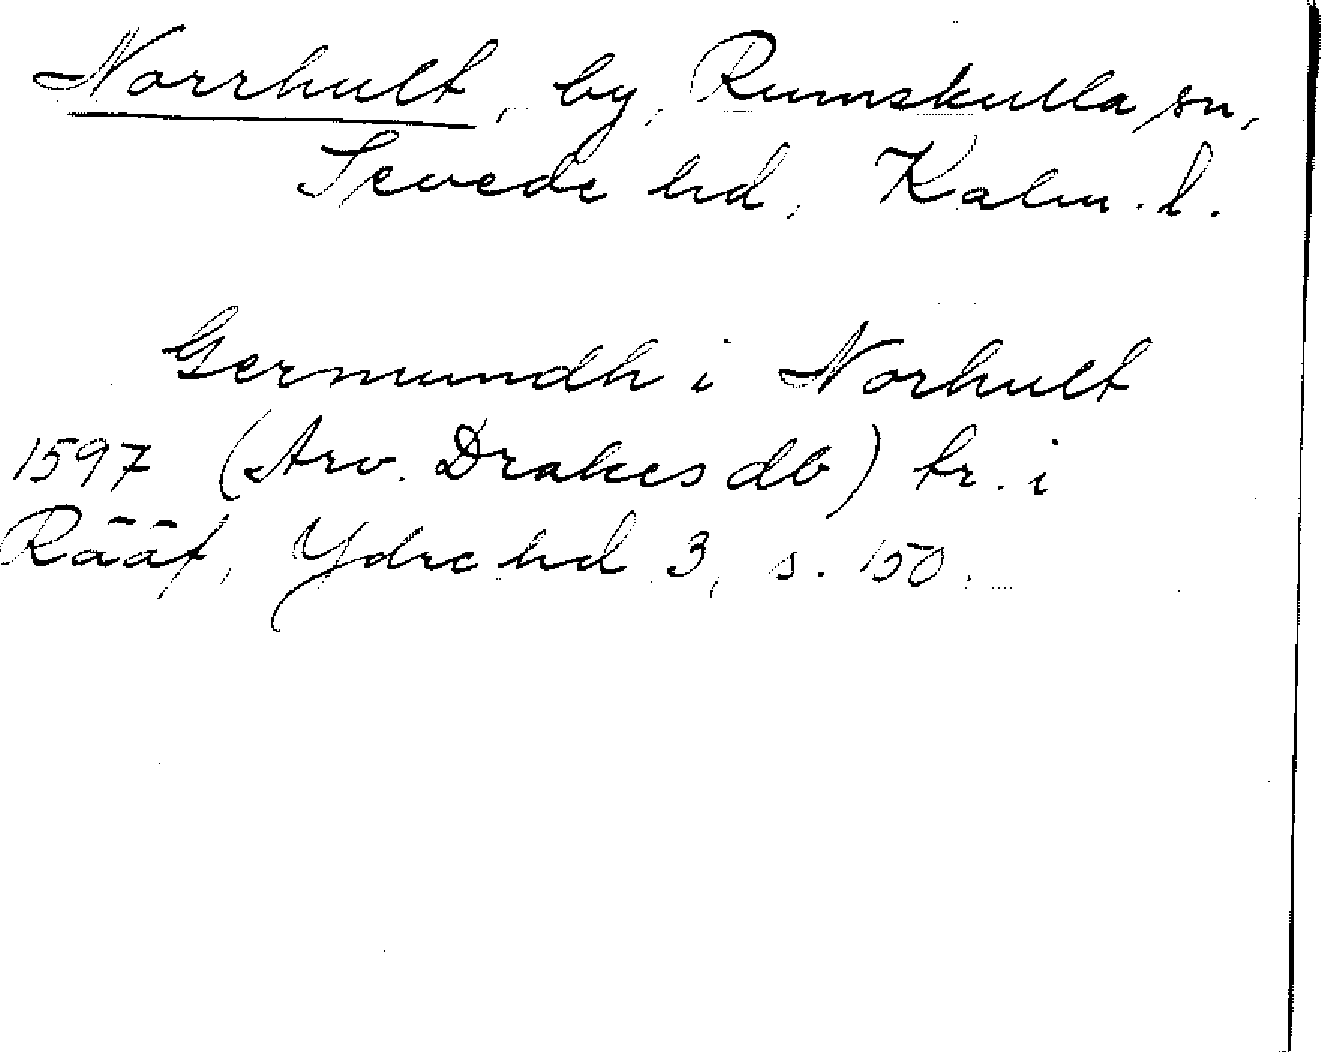 Norrhult, by, Rumskulla sn,
Sevede hd, Kalm. l.
Germundh i Norhult
1597 (Arv. Drakes db) tr. i
Rääf, Ydre hd 3, s. 150.